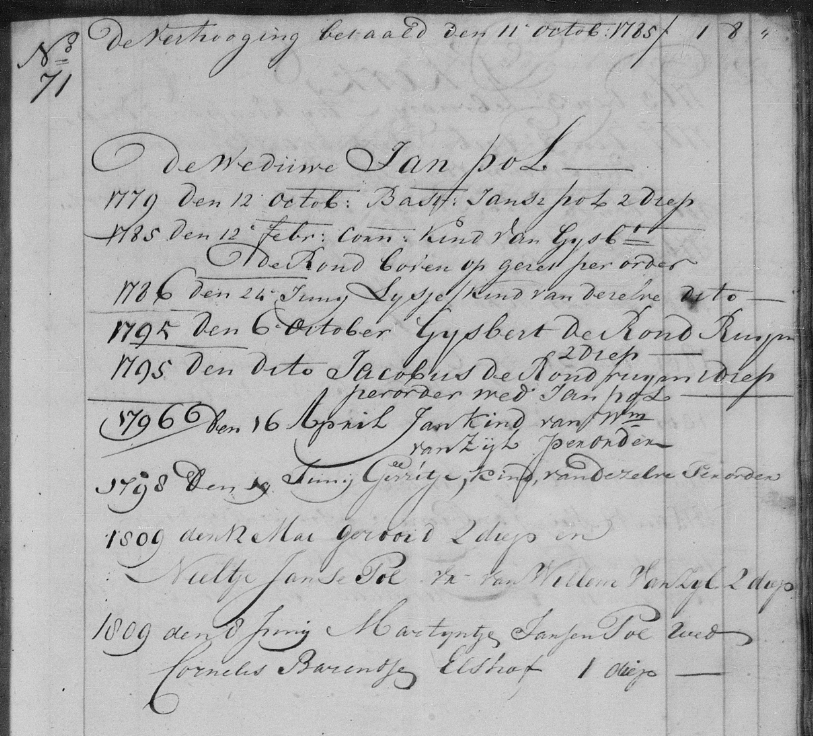 De Verhooging betaald den 11 octob: 1785 / 1 8 "
No
71
De Weduwe Jan pol
1779 den 12 octob: Bast: Janse pol 2 diep
1785 den 12 febr: Corn: Kind van Gysbt
de Rond boven op gezet per order
1786 den 24 Juny Lysje kind van dezelve dito
1795 den 6 October Gysbert de Rond Ruym
2 diep
1795 den dito Jacobus de Rond ruym 1 diep
per order wed Jan pol
1796 den 16 April Jan kind van Wm
van Zyl per order
1798 den 19 Juny Gerritje, kind, van dezelve Per order
1809 den 12 Mai geroerd 2 diep en
Neeltje Janse Pol vr van Willem Van Zyl 2 diep
1809 den 8 Juny Martyntje Jansen Pol wed
Cornelis Barentse Elshof 1 diep